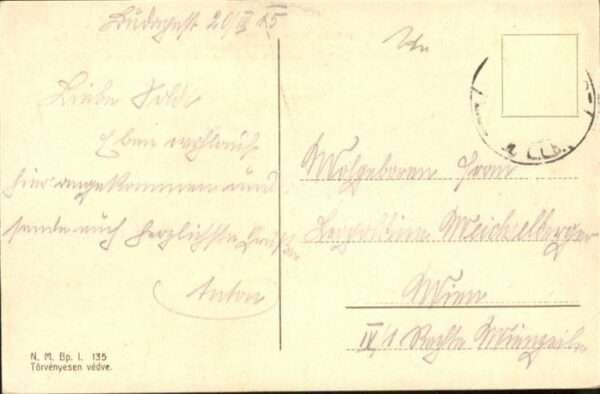 Budapest 20/III 15
Liebe Poldi
Eben wohlauf
hier angekommen und
sende euch herzlichste Grüße
Anton
An
Wohlgeboren Frau
Leopoldine Meichselberger
Wien
IV/1 Rechte Wienzeile
N. M. Bp. I. 135
Törvényesen védve.